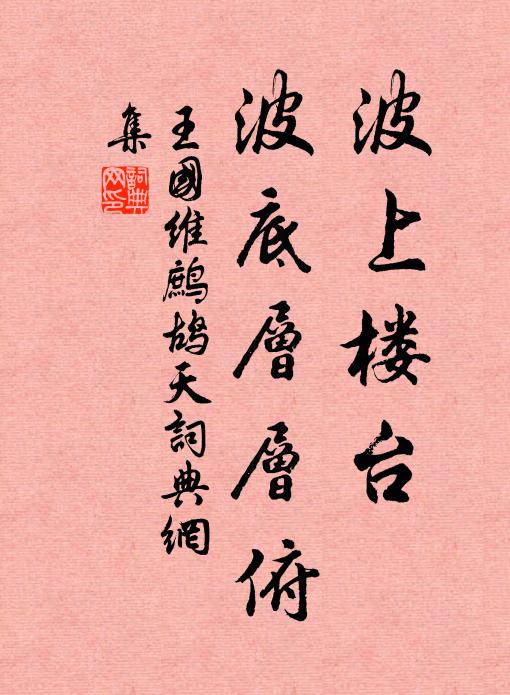 波上楼台
波底層層俯
王國維鷓鴣天詞典網
集
詞典
网印